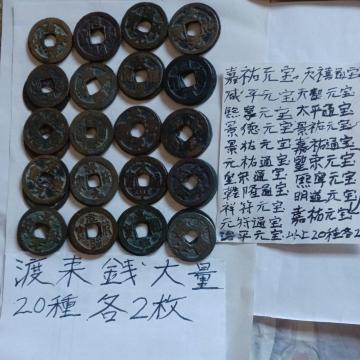 嘉祐元宝。天禧通宝
咸平元宝 天聖元宝
熙寧元宝 太平通宝
景德元宝 景祐元宝
景祐元宝 嘉祐通宝
元祐通宝 聖宋元宝
皇宋通宝 熙寧元宝
乾隆通宝 明道元宝
祥符元宝 嘉祐元宝
元符通宝
治平元宝 以上20種各2
渡来銭大量
20種 各2枚